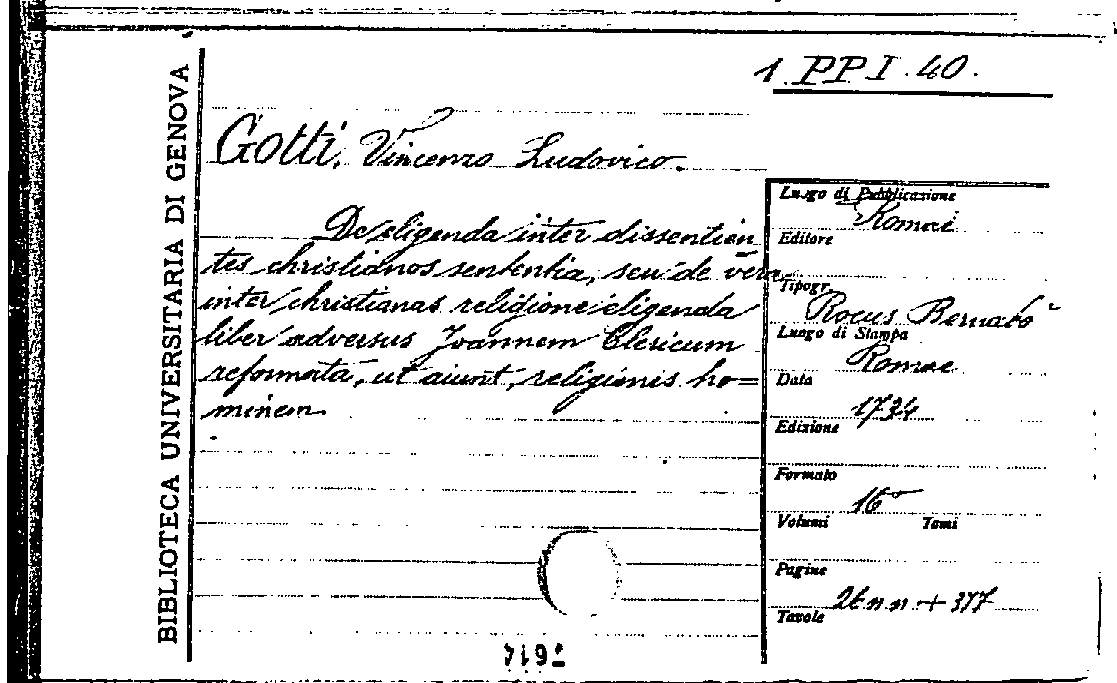 1. PP I. 40.
BIBLIOTECA UNIVERSITARIA DI GENOVA
Gotti, Vincenzo Ludovico.
De eligenda inter dissentien
tes christianos sententia, seu de vera
inter christianas religione eligenda
liber adversus Joannem Clericum
reformatæ, ut aiunt, religionis ho=
minem
Luogo di Pubblicazione
Romae
Editore
Tipogr.
Rocus Bernabò
Luogo di Stampa
Romae
Data
1734
Edizione
Formato
16°
Volumi Tomi
Pagine
26 n n + 377
Tavole